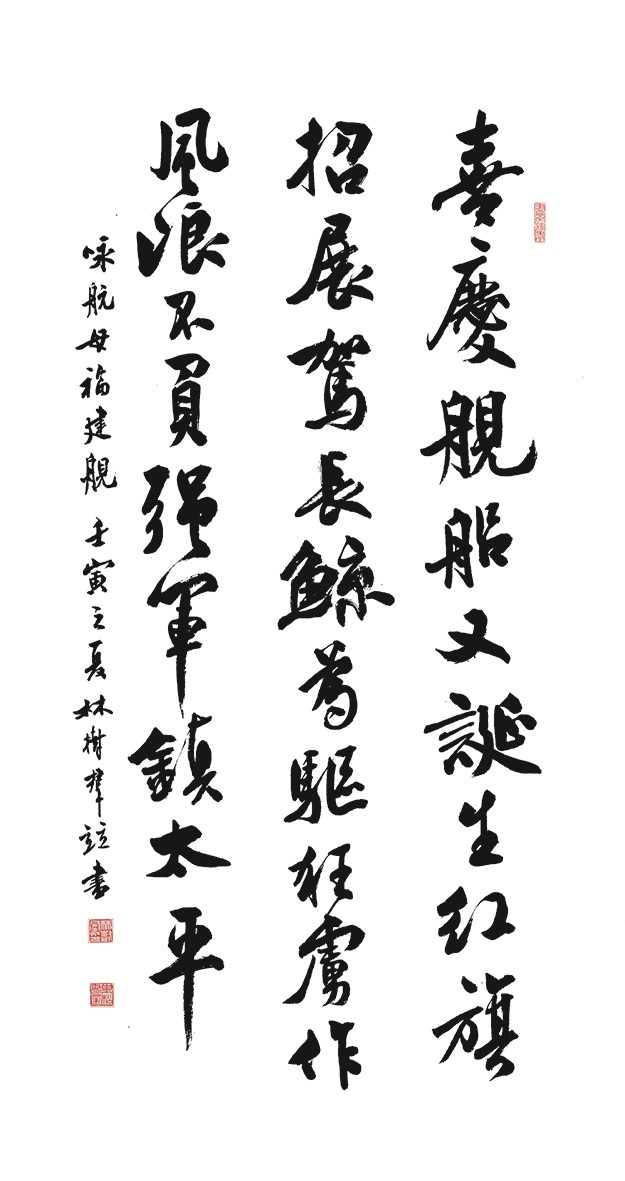 喜慶舰船又誕生红旗
招展駕長鯨為驅狂虜作
風浪不負强軍鎮太平
咏航母福建舰 壬寅之夏林樹群竝書